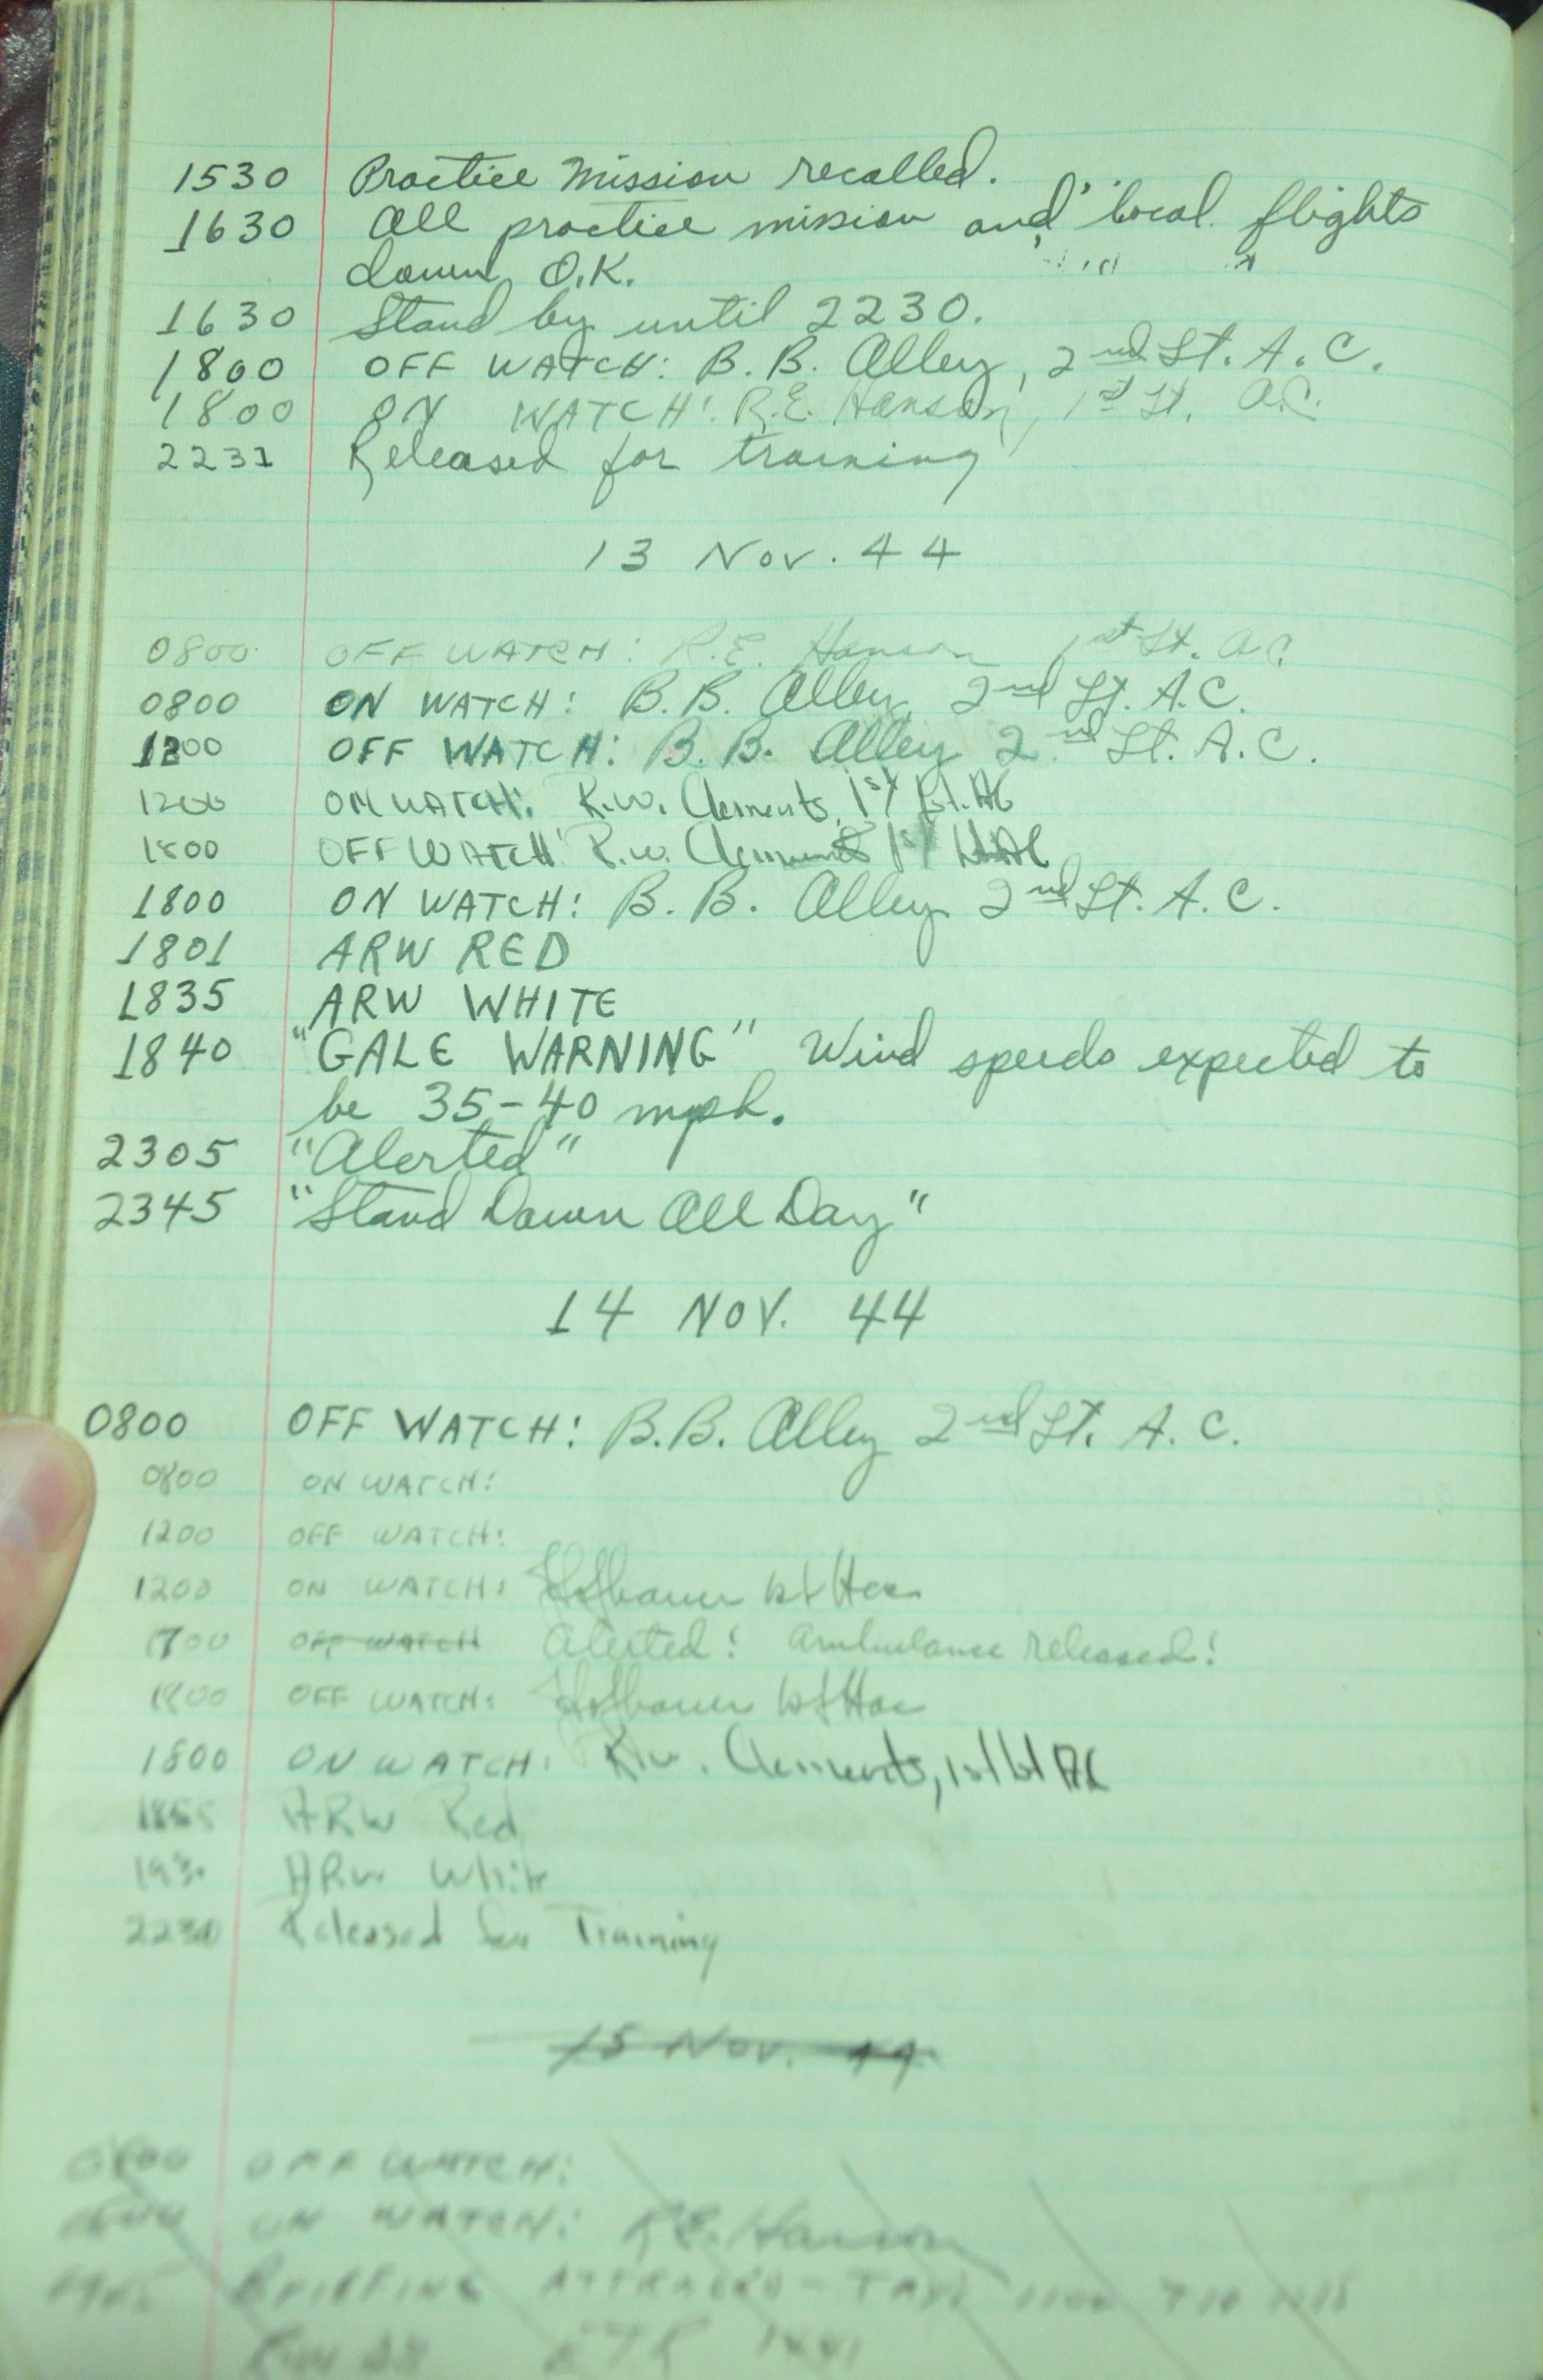 1530 Practice Mission recalled.
1630 All practice mission and local flights
down O.K.
1630 Stand by until 2230.
1800 OFF WATCH: B. B. Alley, 2nd Lt. A. C.
1800 ON WATCH: R.E. Hanson, 1st Lt. A.C.
2231 Released for training
13 Nov. 44
0800 OFF WATCH: R.E. Hanson 1st Lt. A.C.
0800 ON WATCH: B. B. Alley 2nd Lt. A.C.
1200 OFF WATCH: B. B. Alley 2nd Lt. A. C.
1200 ON WATCH: R.W. Clements, 1st Lt. AC
1800 OFF WATCH: R.W. Clements 1st Lt AC
1800 ON WATCH: B. B. Alley 2nd Lt. A. C.
1801 ARW RED
1835 ARW WHITE
1840 "GALE WARNING" Wind speeds expected to
be 35-40 mph.
2305 "Alerted"
2345 "Stand Down All Day"
14 NOV. 44
0800 OFF WATCH: B.B. Alley 2nd Lt. A. C.
0800 ON WATCH:
1200 OFF WATCH:
1200 ON WATCH:
1700 OFF WATCH Alerted! Ambulance released!
1800 OFF WATCH:
1800 ON WATCH: R.W. Clements, 1st Lt AC
1855 ARW Red
1930 ARW White
Released for Training
15 Nov. 44
OFF WATCH:
ON WATCH: R.E. Hanson
BRIEFING